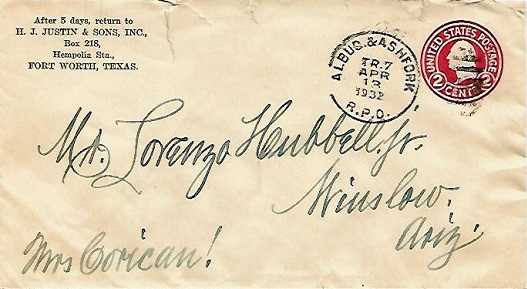 After 5 days, return to
H. J. JUSTIN & SONS, INC.,
Box 218,
Hempolia Sta.,
FORT WORTH, TEXAS.
ALBUQ. & ASHFORK
TR. 7
APR
13
1932
R.P.O.
UNITED STATES POSTAGE
2 CENTS 2
Mr. Lorenzo Hubbell. Jr.
Winslow.
Ariz.
Mrs Corican!